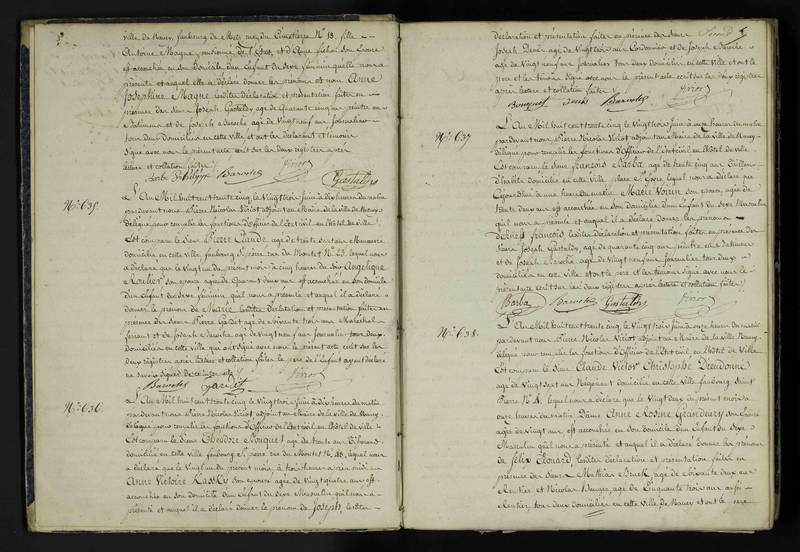 ville de Nancy, faubourg de Metz rue du Cimetière N° 18, fille
Antoine Magne, pensionné de l'Etat, et d'Anne
est accouchée en son domicile d'un Enfant du Sexe féminin qu'elle nous a
présenté et auquel elle a déclaré donner les prénoms et nom Anne
Joséphine Magne, lesdites déclaration et présentation faites en
présence des Sieurs Joseph Gastaldy âgé de Quarante cinq ans peintre en
Batiments et de Joseph âgé de Vingt neuf ans Journalier
tous deux Domiciliés en cette ville, et ont les déclarant et témoins
Signé avec nous le présent acte écrit sur les deux registres après
lecture et collation faites
Gastaldy
N°. 635.
L'An Mil huit cent trente cinq le Vingt trois juin à dix heures du matin
par devant nous Pierre Nicolas Viriot adjoint au Maire de la ville de Nancy,
délégué pour remplir les fonctions d'Officier de l'Etat civil en l'hôtel de ville
Est comparu le Sieur Pierre Claude, âgé de trente sept ans Manœuvre
domicilié en cette ville, faubourg St. pierre rue du Montet N° 23, lequel nous
a déclaré que le Vingt un du présent mois à cinq heures du soir Angélique
son épouse âgée de Quarante deux ans est accouchée en son domicile
d'un Enfant du Sexe féminin, qu'il nous a présenté et auquel il a déclaré
donner le prénom de Marie lesdites déclaration et présentation faites en
présence des Sieurs Pierre âgé de soixante trois ans Maréchal
ferrant et de Joseph âgé de Vingt neuf ans journalier tous deux
domiciliés en cette ville qui ont signé avec nous le présent acte écrit sur les
deux registres après lecture et collation faites le père de l'Enfant ayant déclaré
ne savoir signer de ce interpellé
N°. 636.
L'An Mil huit cent trente cinq le Vingt trois juin à dix heures du matin
par devant nous Pierre Nicolas Viriot adjoint au Maire de la ville de Nancy,
délégué pour remplir les fonctions d'Officier de l'Etat civil en l'hôtel de ville
Est comparu le Sieur Théodore Bouquet âgé de trente ans
domicilié en cette ville faubourg St. pierre rue du Montet N° 48, lequel nous
a déclaré que le Vingt un du présent mois, à trois heures après midi
Anne Victoire son épouse âgée de Vingt quatre ans est
accouchée en son domicile d'un Enfant du Sexe Masculin qu'il nous a
présenté et auquel il a déclaré donner le prénom de Joseph, lesdites
déclaration et présentation faites en présence des Sieurs
Joseph âgé de Vingt trois ans Cordonnier et de Joseph
âgé de Vingt neuf ans journalier tous deux domiciliés en cette ville et ont le
père et les témoins Signé avec nous le présent acte écrit sur les deux registres
après lecture et collation faites
Bouquet
N°. 637
L'An Mil huit cent trente cinq le Vingt trois juin à onze heures du matin
par devant nous, Pierre Nicolas Viriot adjoint au Maire de la ville de Nancy,
délégué pour remplir les fonctions d'Officier de l'Etat civil en l'hôtel de Ville
Est comparu le Sieur François Barba âgé de trente cinq ans
domicilié en cette ville, place St. Epvre, lequel nous a déclaré que
Cejourd'hui à une heure du matin Marie Voirin son épouse, âgée de
trente deux ans est accouchée en son domicile d'un Enfant du Sexe Masculin
qu'il nous a présenté et auquel il a déclaré donner les prénoms
d'Ernest François lesdites déclaration et présentation faites en présence des
Sieurs Joseph Gastaldy, âgé de quarante cinq ans peintre en Batiments
et de Joseph âgé de Vingt neuf ans journalier tous deux
domiciliés en cette ville et ont le père et les témoins signé avec nous le
présent acte écrit sur les deux registres après lecture et collation faites
Barba Gastaldy
N°. 638.
L'An Mil huit cent trente cinq le Vingt trois juin à onze heures du matin
par devant nous Pierre Nicolas Viriot adjoint au Maire de la ville de Nancy,
délégué pour remplir les fonctions d'Officier de l'Etat civil, en l'hôtel de Ville
Est comparu le Sieur Claude Victor Christophe Dieudonné
âgé de Vingt sept ans Négociant domicilié en cette ville faubourg Saint
Pierre N° 4, lequel nous a déclaré que le Vingt deux du présent mois à
onze heures du matin Dame Anne Rosine Grandeury son épouse
âgée de Vingt ans est accouchée en son domicile d'un Enfant du Sexe
Masculin qu'il nous a présenté et auquel il a déclaré donner les prénoms
de Félix Edouard, lesdites déclaration et présentation faites en
présence des Sieurs Mathias âgé de Soixante deux ans
Rentier et Nicolas âgé de Cinquante trois ans aussi
Rentier, tous deux domiciliés en cette ville de Nancy et ont le père